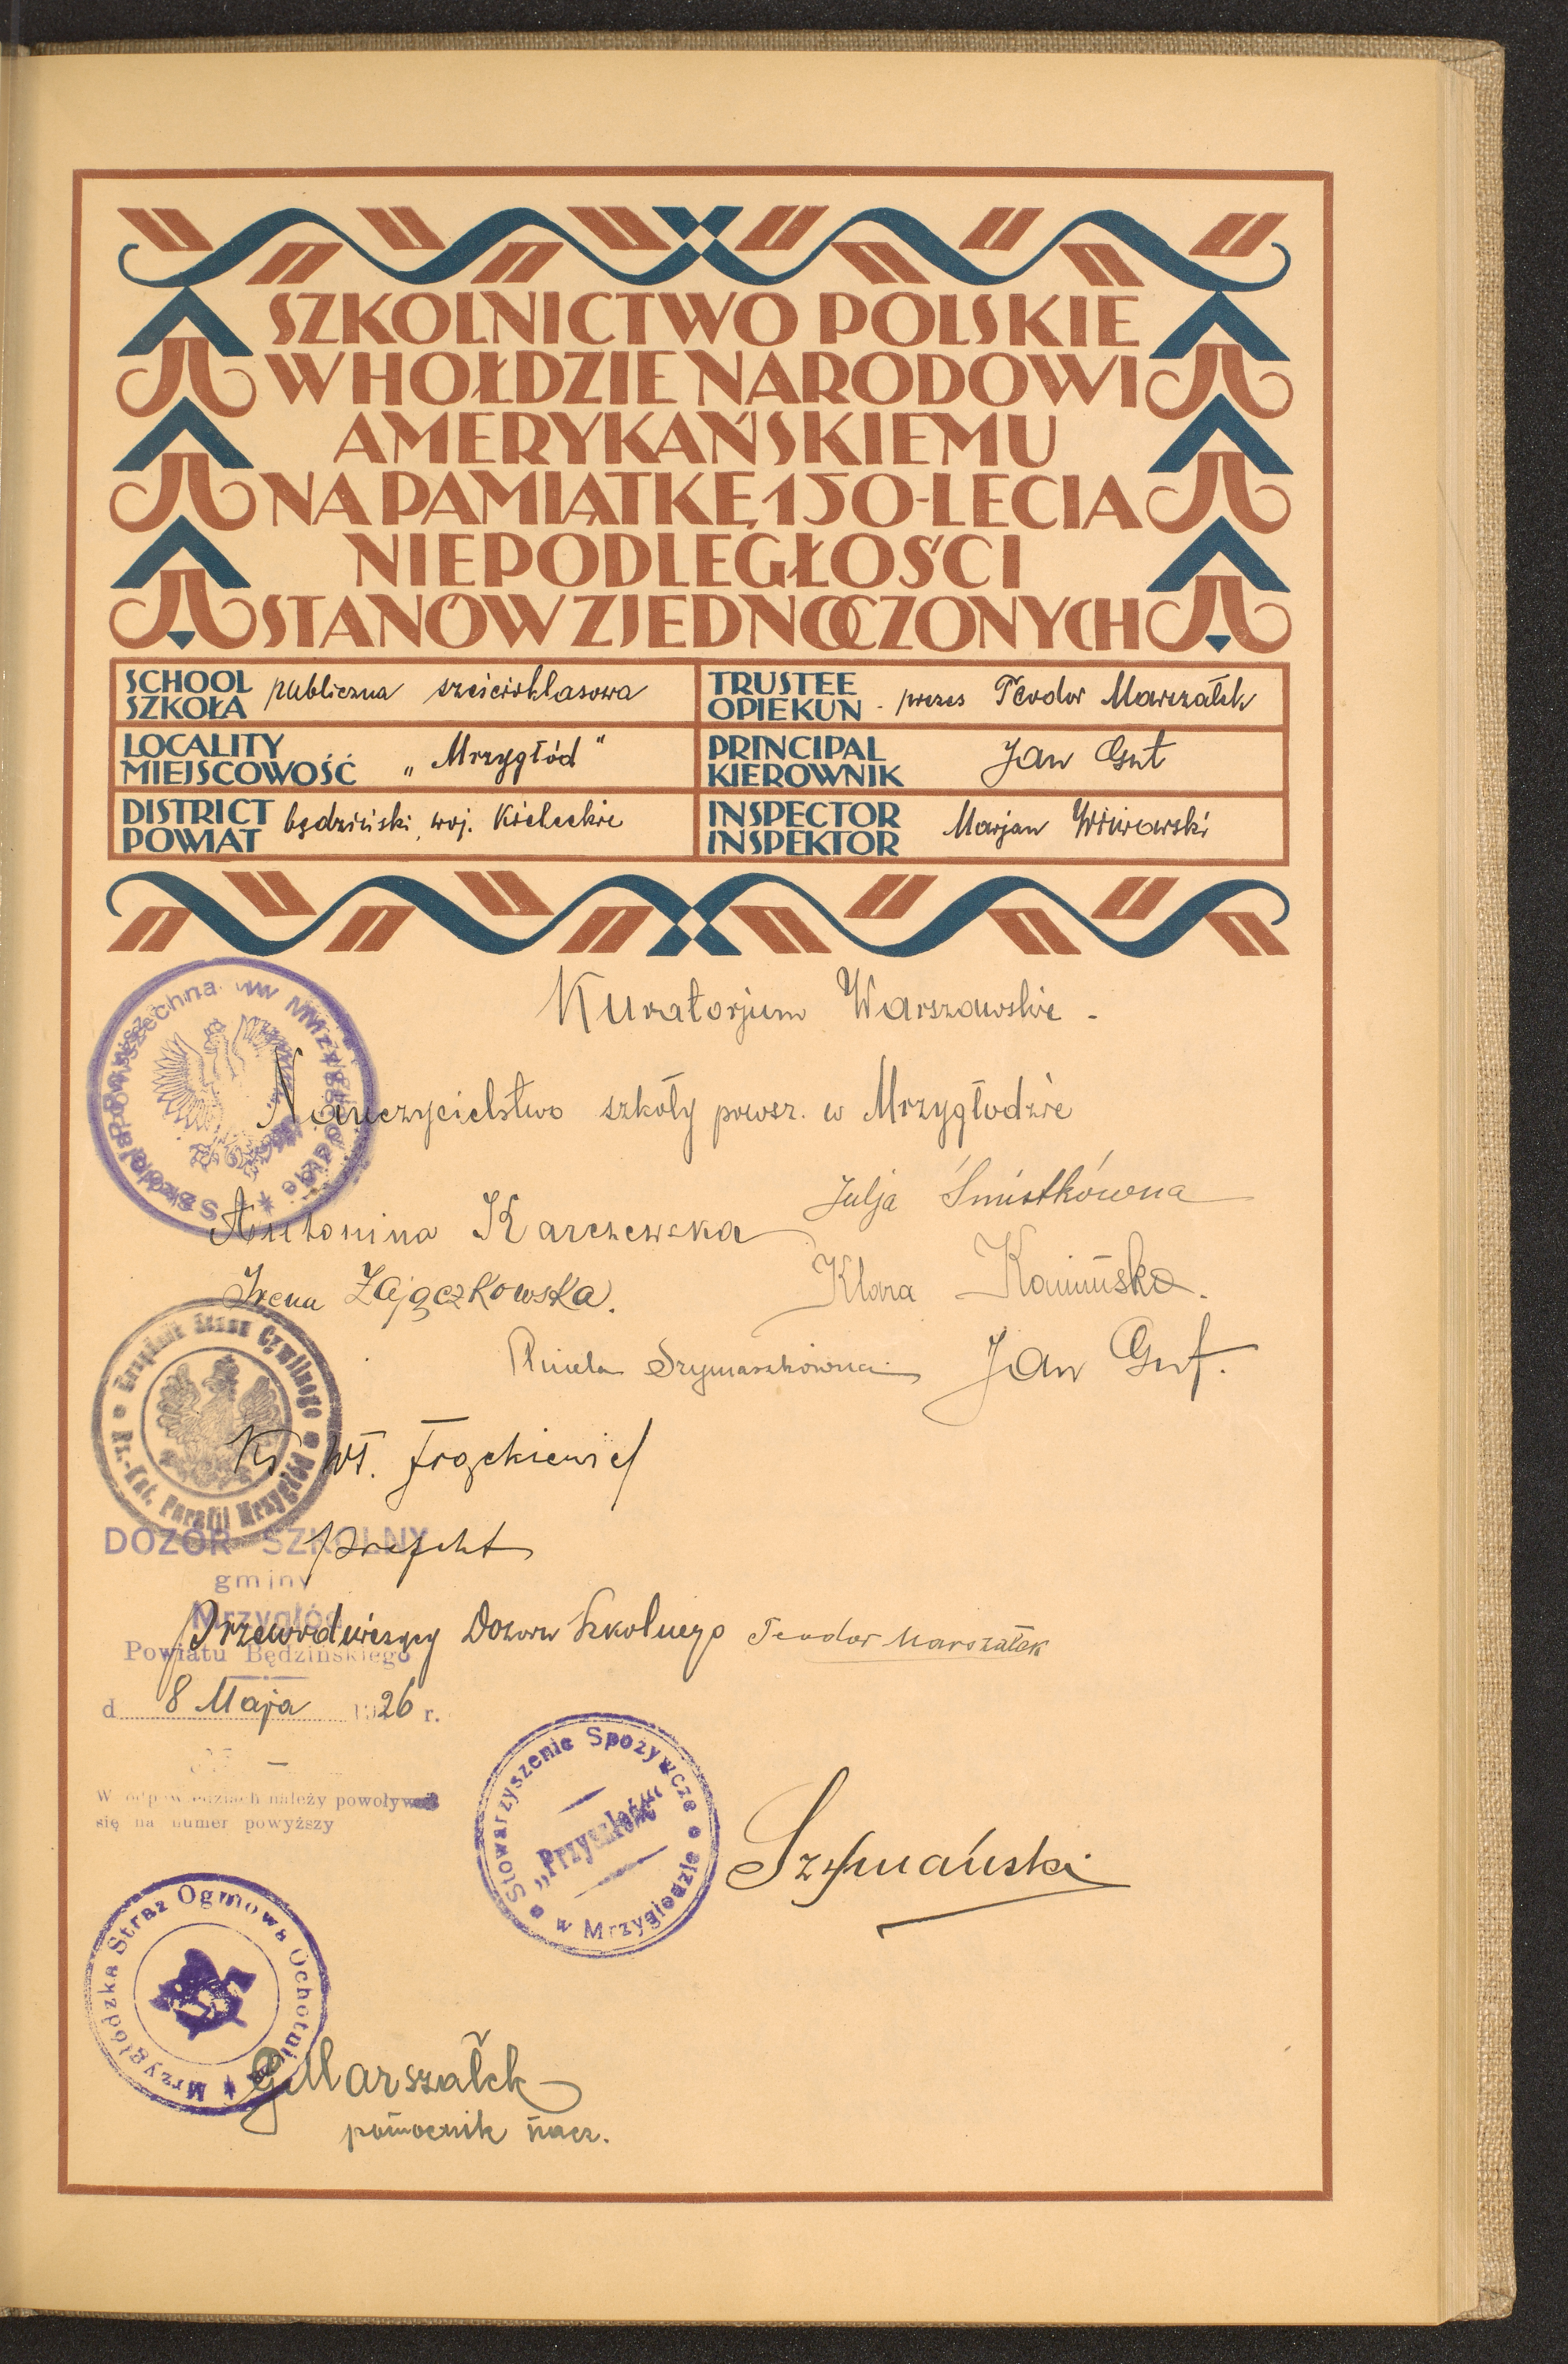 SZKOLNICTWO POLSKIE
W HOŁDZIE NARODOWI
AMERYKAŃSKIEMU
NA PAMIĄTKĘ 150-LECIA
NIEPODLEGŁOŚCI
STANÓW ZJEDNOCZONYCH
SCHOOL
SZKOŁA
publiczna sześcioklasowa
TRUSTEE
OPIEKUN
- prezes Teodor Marszałek
LOCALITY
MIEJSCOWOŚĆ
„Mrzygłód"
PRINCIPAL
KIEROWNIK
Jan Gut
DISTRICT
POWIAT
będziński, woj. Kieleckie
INSPECTOR
INSPEKTOR
Marjan
Kuratorjum Warszawskie -
Szkoła Powszechna w Mrzygłodzie
Nauczycielstwo szkoły powsz. w Mrzygłodzie
Antonina Karczewska
Julja Śmistkówna
Irena Zajączkowska.
Klara Kamińska.
Aniela Szymaszkówna
Jan Gut.
Urzędnik Stanu Cywilnego
Rz.-Kat. Parafii Mrzygłód
Ks Wł.
prefekt
DOZÓR SZKOLNY
gminy
Mrzygłód
Powiatu Będzińskiego
Przewodniczący Dozoru Szkolnego Teodor Marszałek
d. 8 Maja 1926 r.
W odpowiedziach należy powoływać
się na numer powyższy
Stowarzyszenie Spożywcze
„Przyszłość"
w Mrzygłodzie
Szymański
Mrzygłódzka Straż Ogniowa Ochotnicza
G Marszałek
pomocnik nacz.